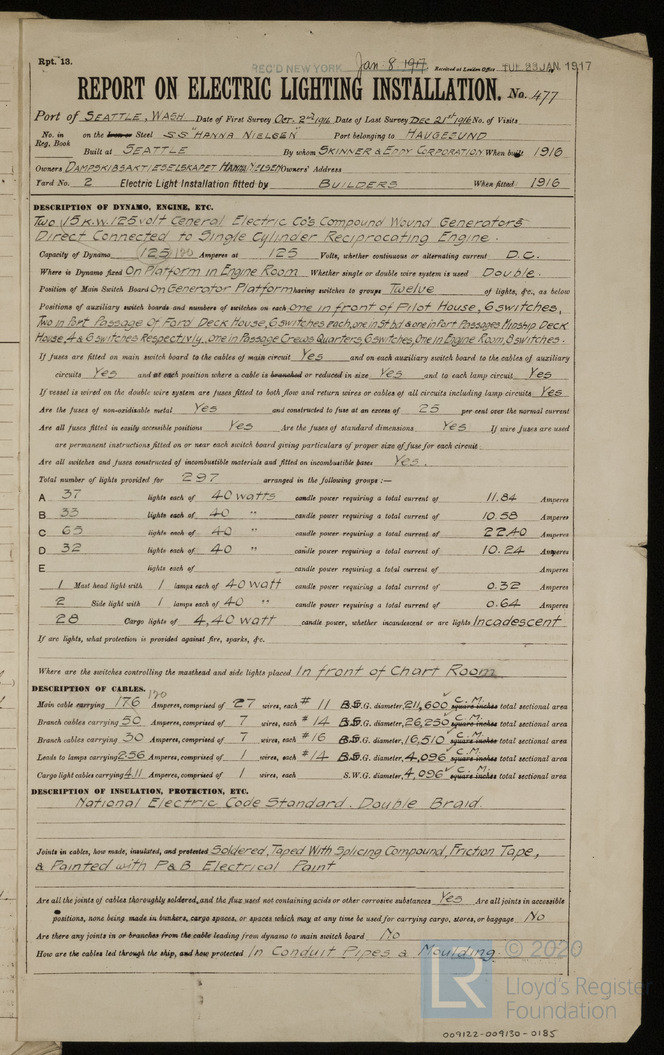 Rpt. 13.
REC'D NEW YORK Jan. 8. 1917 Received at London Office TUE. 23 JAN. 1917
REPORT ON ELECTRIC LIGHTING INSTALLATION. No. 477
Port of SEATTLE, WASH Date of First Survey OCT. 2nd 1916 Date of Last Survey DEC 21st 1916 No. of Visits
No. in Reg. Book on the Iron or Steel S.S "HANNA NIELSEN" Port belonging to HAUGEZUND
Built at SEATTLE By whom SKINNER & EDDY CORPORATION When built 1916
Owners DAMPSKIBSAKTIESELSKAPET HANNA NIELSEN Owners' Address
Yard No. 2 Electric Light Installation fitted by BUILDERS When fitted 1916
DESCRIPTION OF DYNAMO, ENGINE, ETC.
Two 15 K.W. 125 volt General Electric Co's Compound Wound Generators
Direct Connected to Single Cylinder Reciprocating Engine.
Capacity of Dynamo 125 120 Amperes at 125 Volts, whether continuous or alternating current D.C.
Where is Dynamo fixed On Platform in Engine Room Whether single or double wire system is used Double.
Position of Main Switch Board On Generator Platform having switches to groups Twelve of lights, &c., as below
Positions of auxiliary switch boards and numbers of switches on each One in front of Pilot House, 6 switches,
Two in Port Passage Of Ford Deck House, 6 switches each, one in Stbd & one in Port Passages Minship Deck
House, 4 & 6 switches Respectivly, One in Passage Crews Quarters, 6 switches, One in Engine Room, 8 switches.
If fuses are fitted on main switch board to the cables of main circuit Yes and on each auxiliary switch board to the cables of auxiliary
circuits Yes and at each position where a cable is branched or reduced in size Yes and to each lamp circuit Yes
If vessel is wired on the double wire system are fuses fitted to both flow and return wires or cables of all circuits including lamp circuits Yes
Are the fuses of non-oxidizable metal Yes and constructed to fuse at an excess of 25 per cent over the normal current
Are all fuses fitted in easily accessible positions Yes Are the fuses of standard dimensions Yes If wire fuses are used
are permanent instructions fitted on or near each switch board giving particulars of proper size of fuse for each circuit
Are all switches and fuses constructed of incombustible materials and fitted on incombustible bases Yes.
Total number of lights provided for 297 arranged in the following groups :—
A 37 lights each of 40 watts candle power requiring a total current of 11.84 Amperes
B 33 lights each of 40 " candle power requiring a total current of 10.58 Amperes
C 65 lights each of 40 " candle power requiring a total current of 22.40 Amperes
D 32 lights each of 40 " candle power requiring a total current of 10.24 Amperes
E lights each of candle power requiring a total current of Amperes
1 Mast head light with 1 lamps each of 40 watt candle power requiring a total current of 0.32 Amperes
2 Side light with 1 lamps each of 40 " candle power requiring a total current of 0.64 Amperes
28 Cargo lights of 4, 40 watt candle power, whether incandescent or arc lights Incadescent
If arc lights, what protection is provided against fire, sparks, &c.
Where are the switches controlling the masthead and side lights placed In front of Chart Room
DESCRIPTION OF CABLES.
Main cable carrying 176 120 Amperes, comprised of 27 wires, each # 11 B.S.G. diameter, 211,600 C.M. square inches total sectional area
Branch cables carrying 50 Amperes, comprised of 7 wires, each # 14 B.S.G. diameter, 26,250 C.M. square inches total sectional area
Branch cables carrying 30 Amperes, comprised of 7 wires, each # 16 B.S.G. diameter, 16,510 C.M. square inches total sectional area
Leads to lamps carrying 2.56 Amperes, comprised of 1 wires, each # 14 B.S.G. diameter, 4,096 C.M. square inches total sectional area
Cargo light cables carrying 4.11 Amperes, comprised of 1 wires, each S.W.G. diameter, 4,096 C.M. square inches total sectional area
DESCRIPTION OF INSULATION, PROTECTION, ETC.
National Electric Code Standard. Double Braid.
Joints in cables, how made, insulated, and protected Soldered, Taped With Splicing Compound, Friction Tape,
& Painted with P&B Electrical Paint
Are all the joints of cables thoroughly soldered, and the flux used not containing acids or other corrosive substances Yes Are all joints in accessible
positions, none being made in bunkers, cargo spaces, or spaces which may at any time be used for carrying cargo, stores, or baggage No
Are there any joints in or branches from the cable leading from dynamo to main switch board No
How are the cables led through the ship, and how protected In Conduit Pipes & Moulding.
LR
© 2020
Lloyd's Register
Foundation
009122-009130-0185